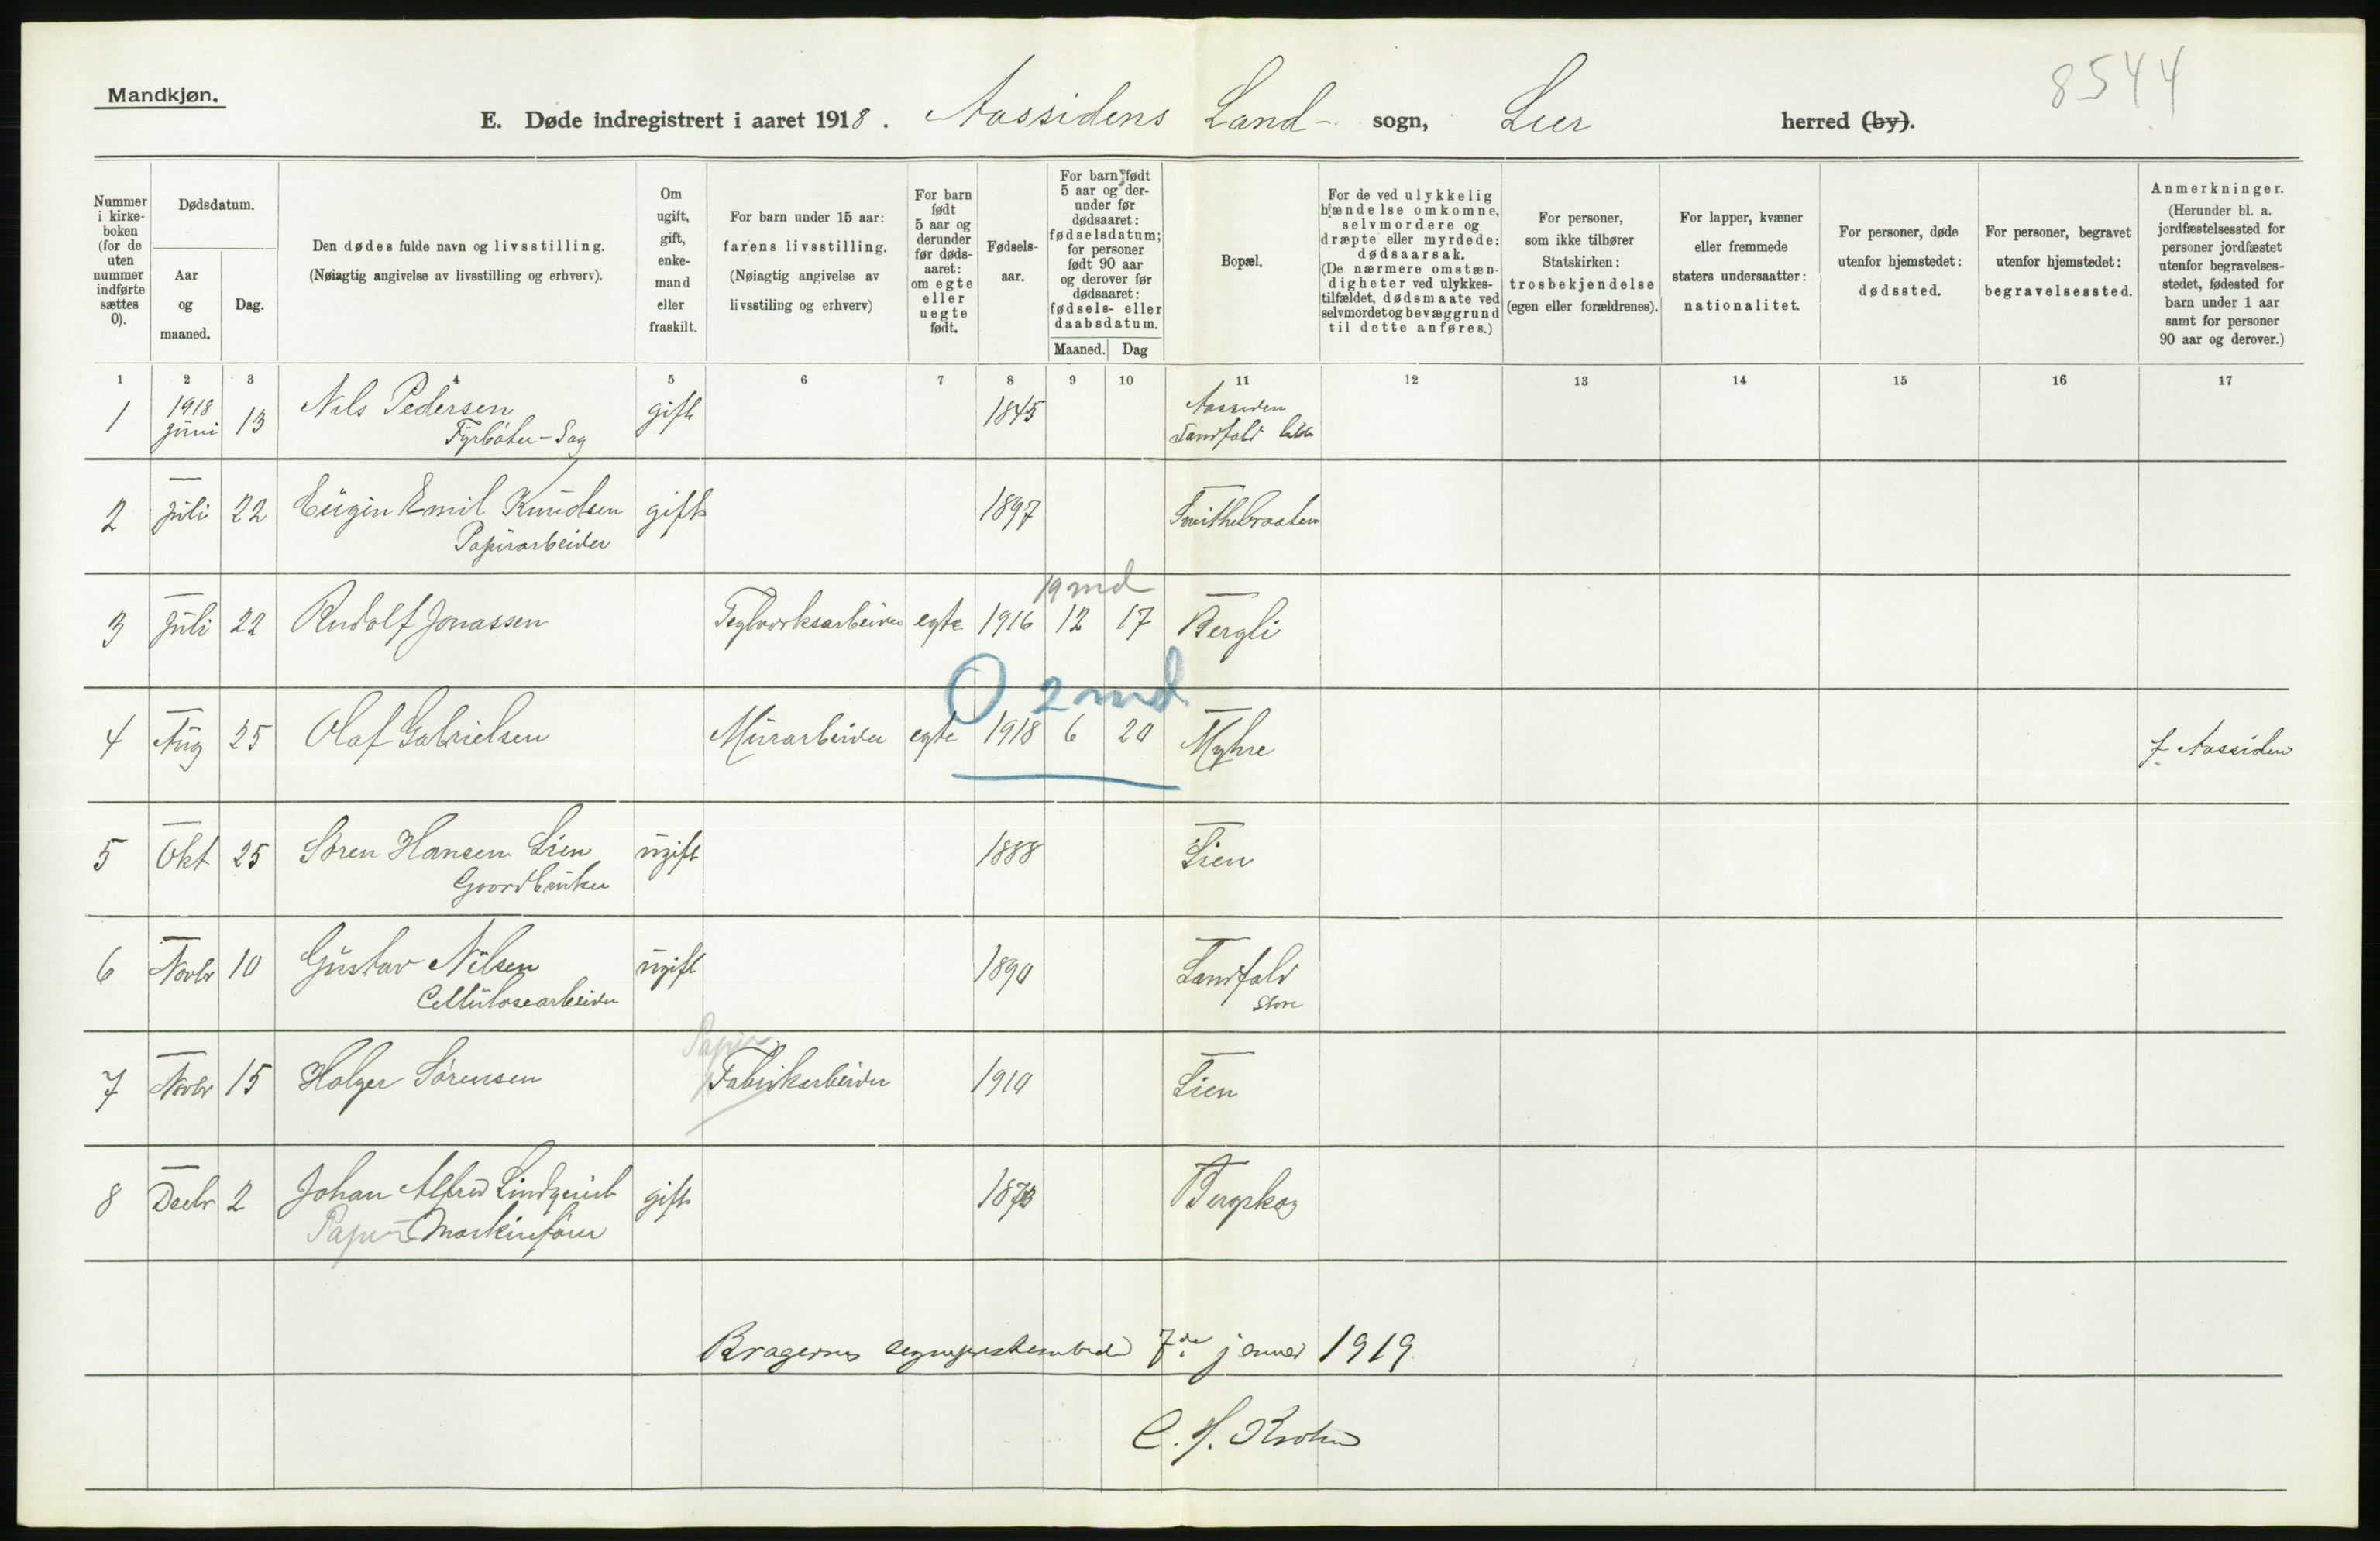 Mandkjøn.
8544
E. Døde indregistrert i aaret 1918. Aassidens Land- sogn, Lier herred (by).
Nummer i kirkeboken (for de uten nummer indførte sættes 0).
Dødsdatum.
Aar og maaned.
Dag.
Den dødes fulde navn og livsstilling.
(Nøiagtig angivelse av livsstilling og erhverv).
Om ugift, gift, enkemand eller fraskilt.
For barn under 15 aar:
farens livsstilling.
(Nøiagtig angivelse av livsstiling og erhverv)
For barn født 5 aar og derunder før dødsaaret: om egte eller uegte født.
Fødselsaar.
For barn født 5 aar og derunder før dødsaaret: fødselsdatum; for personer født 90 aar og derover før dødsaaret: fødsels- eller daabsdatum.
Maaned. Dag
Bopæl.
For de ved ulykkelig hændelse omkomne, selvmordere og dræpte eller myrdede: dødsaarsak.
(De nærmere omstændigheter ved ulykkestilfældet, dødsmaate ved selvmordet og bevæggrund til dette anføres.)
For personer, som ikke tilhører Statskirken: trosbekjendelse (egen eller forældrenes).
For lapper, kvæner eller fremmede staters undersaatter: nationalitet.
For personer, døde utenfor hjemstedet: dødssted.
For personer, begravet utenfor hjemstedet: begravelsessted.
Anmerkninger.
(Herunder bl. a. jordfæstelsessted for personer jordfæstet utenfor begravelsesstedet, fødested for barn under 1 aar samt for personer 90 aar og derover.)
1 2 3 4 5 6 7 8 9 10 11 12 13 14 15 16 17
1 1918 juni 13 Nils Pedersen gift 1845 Aassiden
Fyrbøter - Sag Landfald lille
2 — juli 22 Eugin Emil Knudsen gift 1897
Papirarbeider
19 md
3 — juli 22 Rudolf Jonassen Teglverksarbeider egte 1916 12 17 Bergli
0 2 md
4 — Aug 25 Olaf Gabrielsen Murarbeider egte 1918 6 20 Myhre f. Aassiden
5 — Okt 25 Søren Hansen Lien ugift 1888 Lien
Gaardbruker
6 — Novbr 10 Gustav Nilsen ugift 1890 Landfald
Cellulosearbeider store
Papir
7 — Novbr 15 Holger Sørensen Fabrikarbeider 1910 Lien
8 — Decbr 2 Johan Alfred Lindqvist gift 1873 Bergskog
Papir- Maskinfører
Bragernes sogneprestembede 7de januar 1919